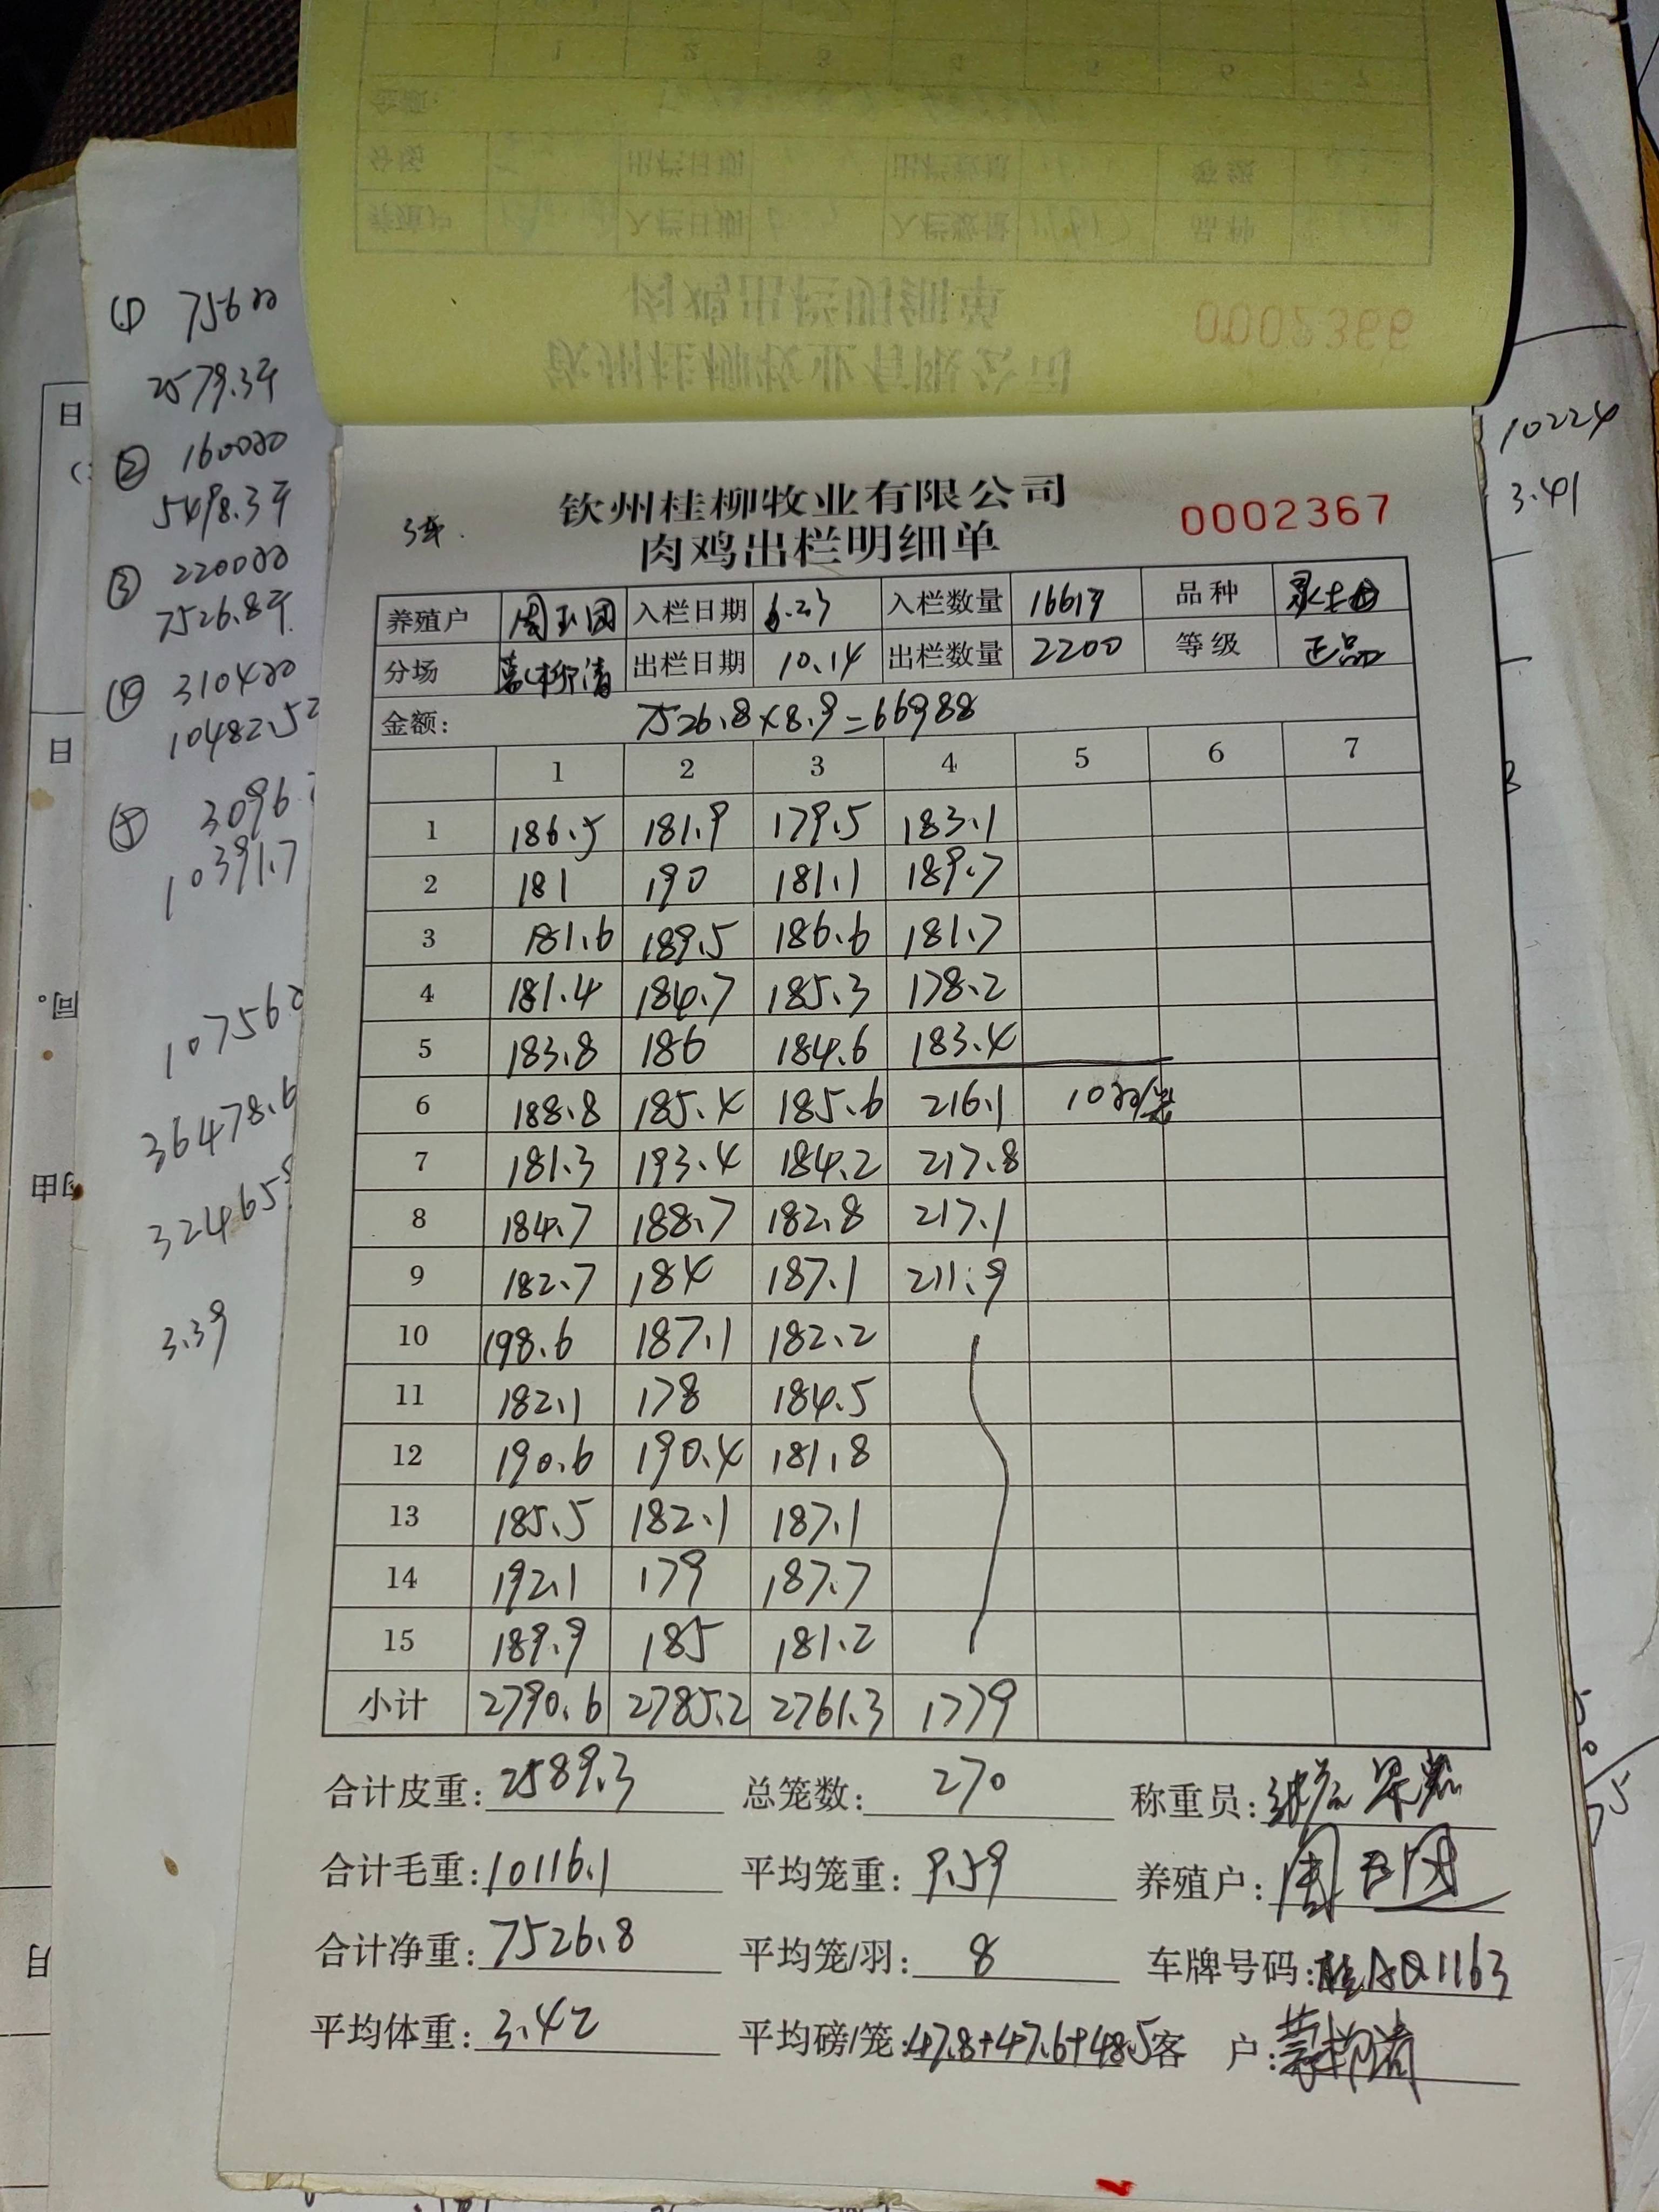 ① 756羽
2579.3斤
② 1600羽
5498.3斤
③ 2200羽
7526.8斤
④ 3104羽
10482.5
⑤ 3096
10391.7
10756
36478.6
32465
3.39
10224
3.41
0002366
3车.
钦州桂柳牧业有限公司
肉鸡出栏明细单
0002367
养殖户 周玉团 入栏日期 6.23 入栏数量 16617 品种
分场 出栏日期 10.14 出栏数量 2200 等级 正品
金额: 7526.8×8.9=66988
1 2 3 4 5 6 7
1 186.5 181.9 179.5 183.1
2 181 190 181.1 189.7
3 181.6 189.5 186.6 181.7
4 181.4 184.7 185.3 178.2
5 183.8 186 184.6 183.4
6 188.8 185.4 185.6 216.1 10羽/笼
7 181.3 193.4 184.2 217.8
8 184.7 188.7 182.8 217.1
9 182.7 184 187.1 211.9
10 198.6 187.1 182.2
11 182.1 178 184.5
12 190.6 190.4 181.8
13 185.5 182.1 187.1
14 192.1 179 187.7
15 189.9 185 181.2
小计 2790.6 2785.2 2761.3 1779
合计皮重: 2589.3 总笼数: 270 称重员:
合计毛重: 10116.1 平均笼重: 9.59 养殖户: 周玉团
合计净重: 7526.8 平均笼/羽: 8 车牌号码: 桂AQ1163
平均体重: 3.42 平均磅/笼: 47.8+47.6+48.5 客 户: